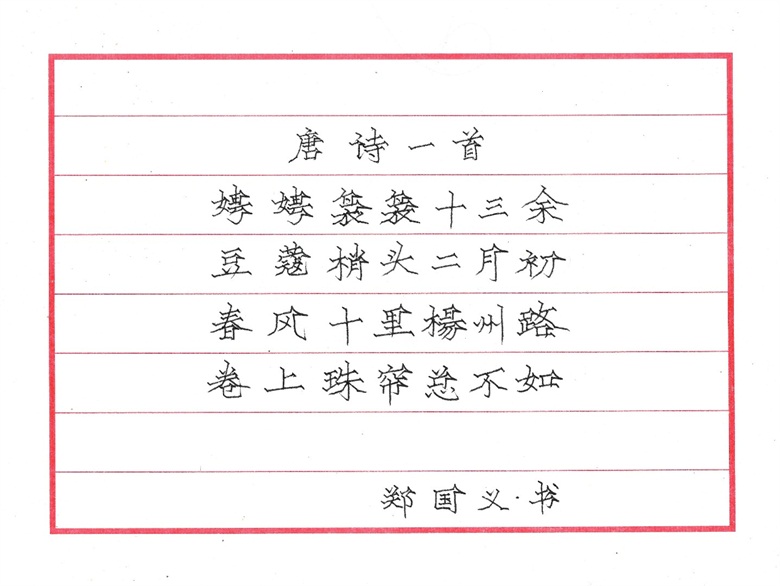 唐诗一首
娉娉袅袅十三余
豆蔻梢头二月初
春风十里楊州路
卷上珠帘总不如
郑国义·书